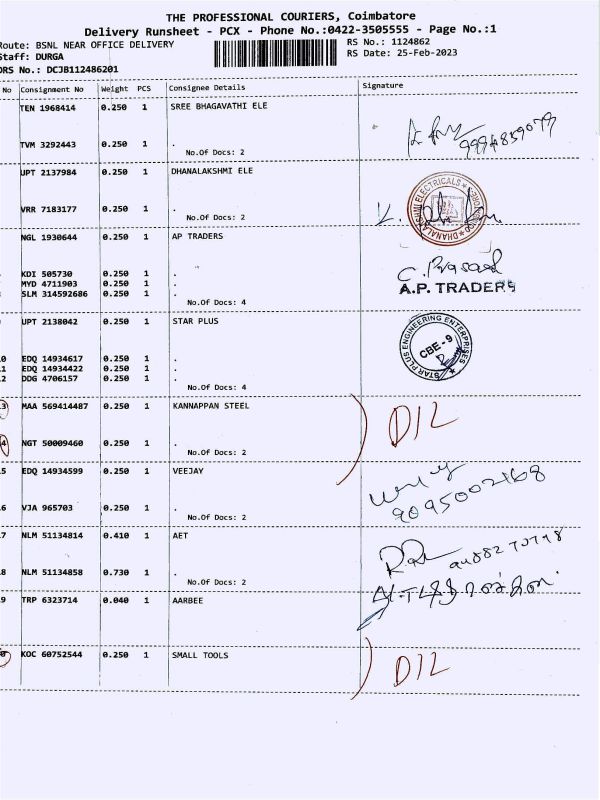 THE PROFESSIONAL COURIERS, Coimbatore
Delivery Runsheet - PCX - Phone No.:0422-3505555 - Page No.:1
Route: BSNL NEAR OFFICE DELIVERY
RS No.: 1124862
Staff: DURGA
RS Date: 25-Feb-2023
DRS No.: DCJB112486201
No Consignment No Weight PCS Consignee Details Signature
TEN 1968414 0.250 1 SREE BHAGAVATHI ELE
9994859079
TVM 3292443 0.250 1 .
No.Of Docs: 2
UPT 2137984 0.250 1 DHANALAKSHMI ELE
DHANALAKSHMI ELECTRICALS
VRR 7183177 0.250 1 .
No.Of Docs: 2
NGL 1930644 0.250 1 AP TRADERS
C. Prasad
KDI 505730 0.250 1 .
MYD 4711903 0.250 1 .
A.P. TRADERS
SLM 314592686 0.250 1 .
No.Of Docs: 4
UPT 2138042 0.250 1 STAR PLUS
STAR PLUS ENGINEERING ENTERPRISES
CBE - 9
EDQ 14934617 0.250 1 .
EDQ 14934422 0.250 1 .
DDG 4706157 0.250 1 .
No.Of Docs: 4
3 MAA 569414487 0.250 1 KANNAPPAN STEEL
D12
4 NGT 50009460 0.250 1 .
No.Of Docs: 2
5 EDQ 14934599 0.250 1 VEEJAY
9095002168
6 VJA 965703 0.250 1 .
No.Of Docs: 2
7 NLM 51134814 0.410 1 AET
8 NLM 51134858 0.730 1 .
No.Of Docs: 2
9 TRP 6323714 0.040 1 AARBEE
0 KOC 60752544 0.250 1 SMALL TOOLS
D12